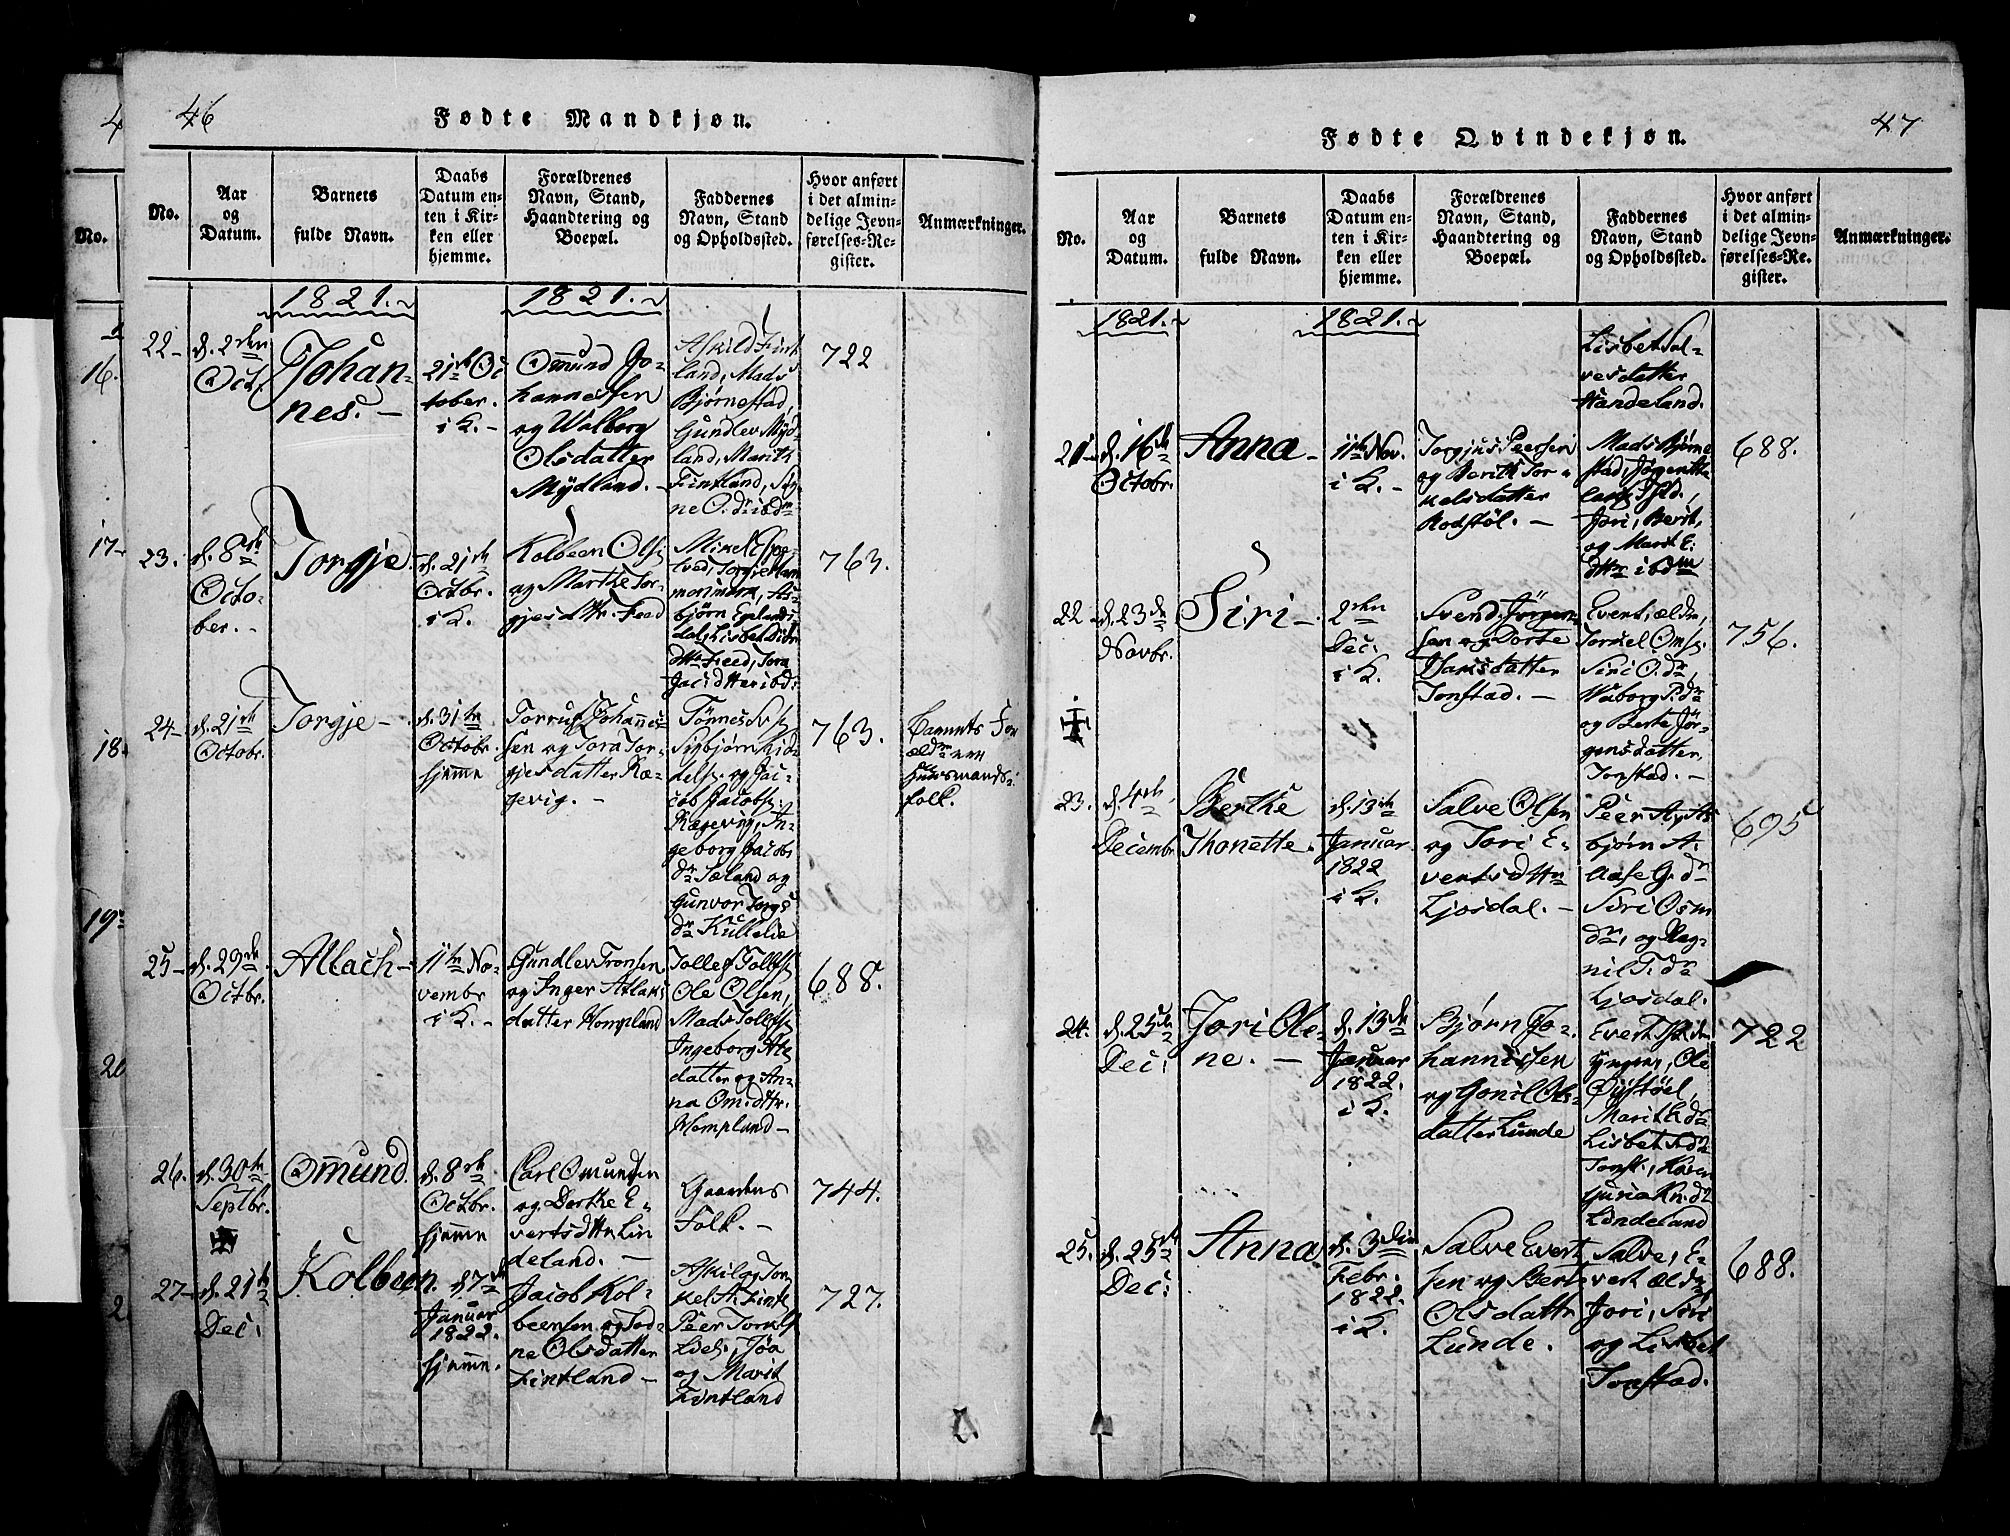 46
Fødte Mandkjøn.
No.
Aar
og
Datum.
Barnets
fulde Navn.
Daabs
Datum en-
ten i Kir-
ken eller
hjemme.
Forældrenes
Navn, Stand,
Haandtering og
Boepæl.
Faddernes
Navn, Stand
og Opholdssted.
Hvor anført
i det almin-
delige Jevn-
førelses-Re-
gister.
Anmærkninger.
1821.
1821.
22-
d. 2den
Oct.
Johan-
nes. -
21de Oc
tober.
i K. -
Omund Jo-
hannessen
og Walborg
Olsdatter
Mydland. -
Askild Fint
land, Mads
Bjørnestad,
Gundlev Myd-
land, Marith
Fintland,
ne O.d. ibdm
722
23.
d. 8de
Octo-
ber. -
Torgje
d. 21de
Octbr.
i K.
Kolbeen Ols.
og Marthe Tor-
gjesdttr. Feed
Mikel Espe-
tved, Torgje Ham
mersmark, As-
bjørn Egelands
dal, Lisbet
dttr Feed, Tora
Jac:dtter ibd:
763.
24-
d. 21de
Octobr.
Torgje -
d. 31te
Octobr.
hjemme
Torruf Johannes-
sen og Tora Tor-
gjesdatter Ræ-
gevig. -
Tønnes
Sigbjørn
dels. og Jac-
cob Jacobs.
Rægevig, In-
geborg Jacobs
dr. Søland og
Gunvor Torgs
dr Kullelie
763.
Barnets For
ældre ere
Huusmands-
folk.
25-
d. 29de
Octbr.
Atlach -
11te No-
vembr
i K. -
Gundlev Tronsen
og Inger Atlaks
datter Hompland
Tollef Tollefs.
Ole Olsen,
Mads Tollefs.
Ingeborg Atle
datter og An-
na Om.dttr.
Hompland -
688.
26.
d. 30te
Septbr.
Omund.
d. 8de
Octbr.
hjemme
Carl Omundsen
og Dorthe E-
vertsdttr Lin
deland. -
Gaardens
Folk. -
744.
27-
d. 21de
Dec:
Kolben.
d. 7de
Januar
1822.
hjemme.
Jacob Kol-
beensen og Tod-
ne Olsdatter
Fintland -
Askil og Tor
kel A. Fintl.
Peer Torkels.
Lieh., Jøa
og Marit
Fintland
727.
47
Fødte Qvindekjøn.
No.
Aar
og
Datum.
Barnets
fulde Navn.
Daabs
Datum en-
ten i Kir-
ken eller
hjemme.
Forældrenes
Navn, Stand,
Haandtering og
Boepæl.
Faddernes
Navn, Stand
og Opholdssted.
Hvor anført
i det almin-
delige Jevn-
førelses-Re-
gister.
Anmærkninger.
1821.
1821.
Lisbet Sal-
vesdatter
Handeland.
21-
d. 16de
Octobr.
Anna -
11te Nov.
i K. -
Torgjus Peersen
og Berith Tor-
kelsdatter
Rodstøl. -
Mads Bjørne
stad, Jørgen
Jori, Berit,
og Marit E.
dttr ibdm
688.
22
d. 23de
Novbr.
Siri -
2den
Dec:
i K.
Svend Jørgen-
sen og Dorte
Isaksdatter
Tonstad. -
Evert, ældr,
Torkel Oms.
Siri O.dr,
Waborg P.dr
og Berte Jør-
gensdatter,
Tonstad. -
756.
23.
d. 4de
Decembr
Berthe
Thonette.
d. 13de
Januar
1822
i K.
Salve Olsen
og Tori E-
vertsdttr
Ljosdal. -
Peer A, As-
bjørn A.
Aase G.dr
Siri Osm
dr, og Rag-
nil T.dr
Ljosdal.
695
24.
d. 25de
Dec:
Jori Ole-
ne. -
d. 13de
Januar
1822.
i K.
Bjørn Jo-
hannissen
og Gonil Ols-
datter Lunde
Evert
Ole
Øystøel,
Marith dr
Lisbet dr
Tonst., Karen
Guria Kn.dr
Lindeland
722
25.
d. 25de
Dec:
Anna -
d. 3die
Febr.
1822.
i K.
Salve Evert
sen og Bert
Olsdattr
Lunde.
Salve, E-
vert ældr,
Jori, Siri
og Lisbet
Tonstad.
688.